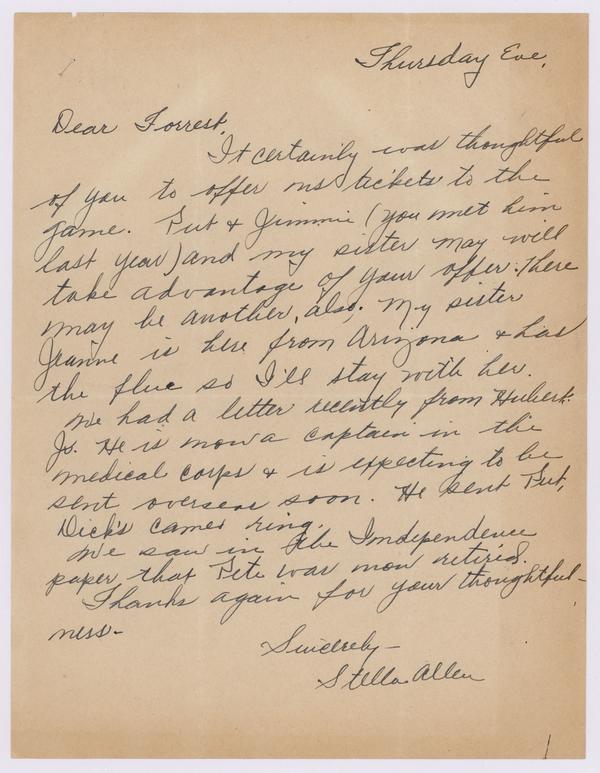 Thursday Eve,
Dear Forrest,
It certainly was thoughtful
of you to offer us tickets to the
game. Put & Jimmie (you met him
last year) and my sister may will
take advantage of your offer. There
may be another, also. My sister
Jeanne is here from Arizona & has
the flue so I'll stay with her.
We had a letter recently from Hubert
Jr. He is now a captain in the
medical corps & is expecting to be
sent overseas soon. He sent Put,
Dick's cameo ring.
We saw in the Independence
paper, that Pete was now retired.
Thanks again for your thoughtful-
ness-
Sincerely-
Stella Allen